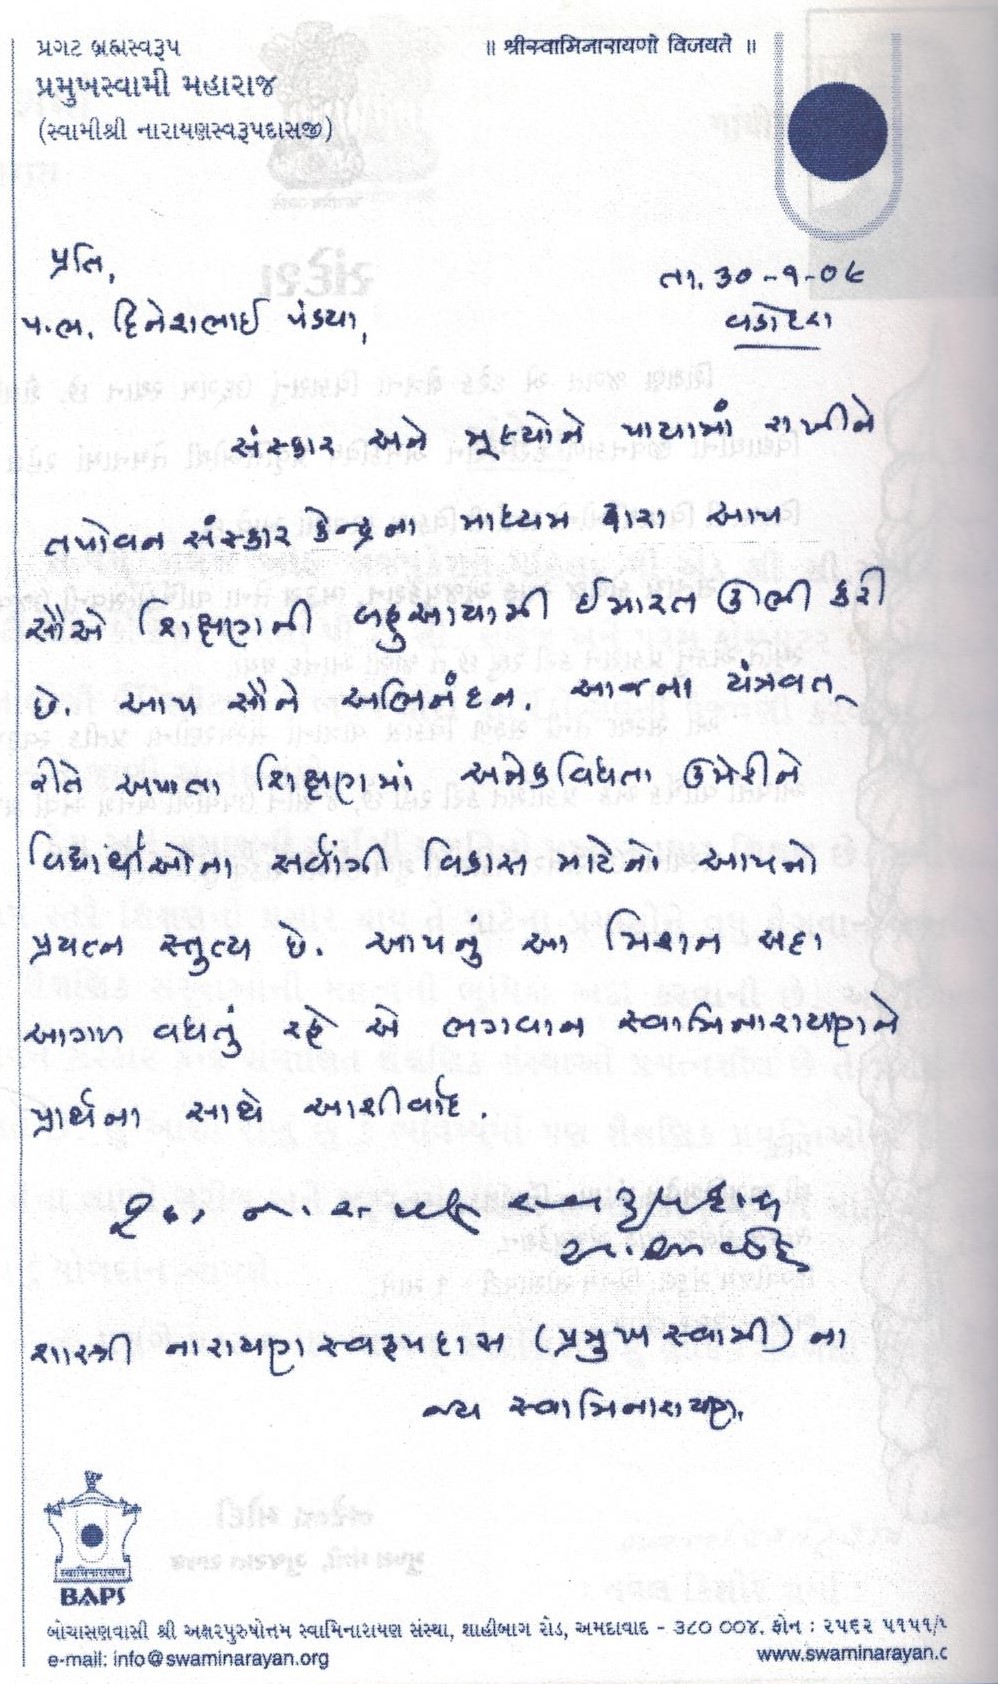 પ્રગટ બ્રહ્મસ્વરૂપ
પ્રમુખસ્વામી મહારાજ
(સ્વામીશ્રી નારાયણસ્વરૂપદાસજી)
॥ શ્રીસ્વામિનારાયણો વિજયતે ॥
પ્રતિ,
પ.ભ. દિનેશભાઈ પંડ્યા,
તા. ૩૦-૧-૦૯
વડોદરા
સંસ્કાર અને મૂલ્યોને પાયામાં રાખીને
તપોવન સંસ્કાર કેન્દ્રના માધ્યમ દ્વારા આપ
સૌએ શિક્ષણની બહુઆયામી ઈમારત ઊભી કરી
છે. આપ સૌને અભિનંદન. આજના યંત્રવત્
રીતે અપાતા શિક્ષણમાં અનેકવિધતા ઉમેરીને
વિદ્યાર્થીઓના સર્વાંગી વિકાસ માટેનો આપનો
પ્રયત્ન સ્તુત્ય છે. આપનું આ મિશન સદા
આગળ વધતું રહે એ ભગવાન સ્વામિનારાયણને
પ્રાર્થના સાથે આશીર્વાદ.
શાસ્ત્રી નારાયણસ્વરૂપદાસ (પ્રમુખસ્વામી) ના
જય સ્વામિનારાયણ.
સ્વામિનારાયણ
BAPS
બોચાસણવાસી શ્રી અક્ષરપુરુષોત્તમ સ્વામિનારાયણ સંસ્થા, શાહીબાગ રોડ, અમદાવાદ - ૩૮૦ ૦૦૪. ફોન : ૨૫૬૨ ૫૧૫૧/
e-mail: info@swaminarayan.org
www.swaminarayan.c